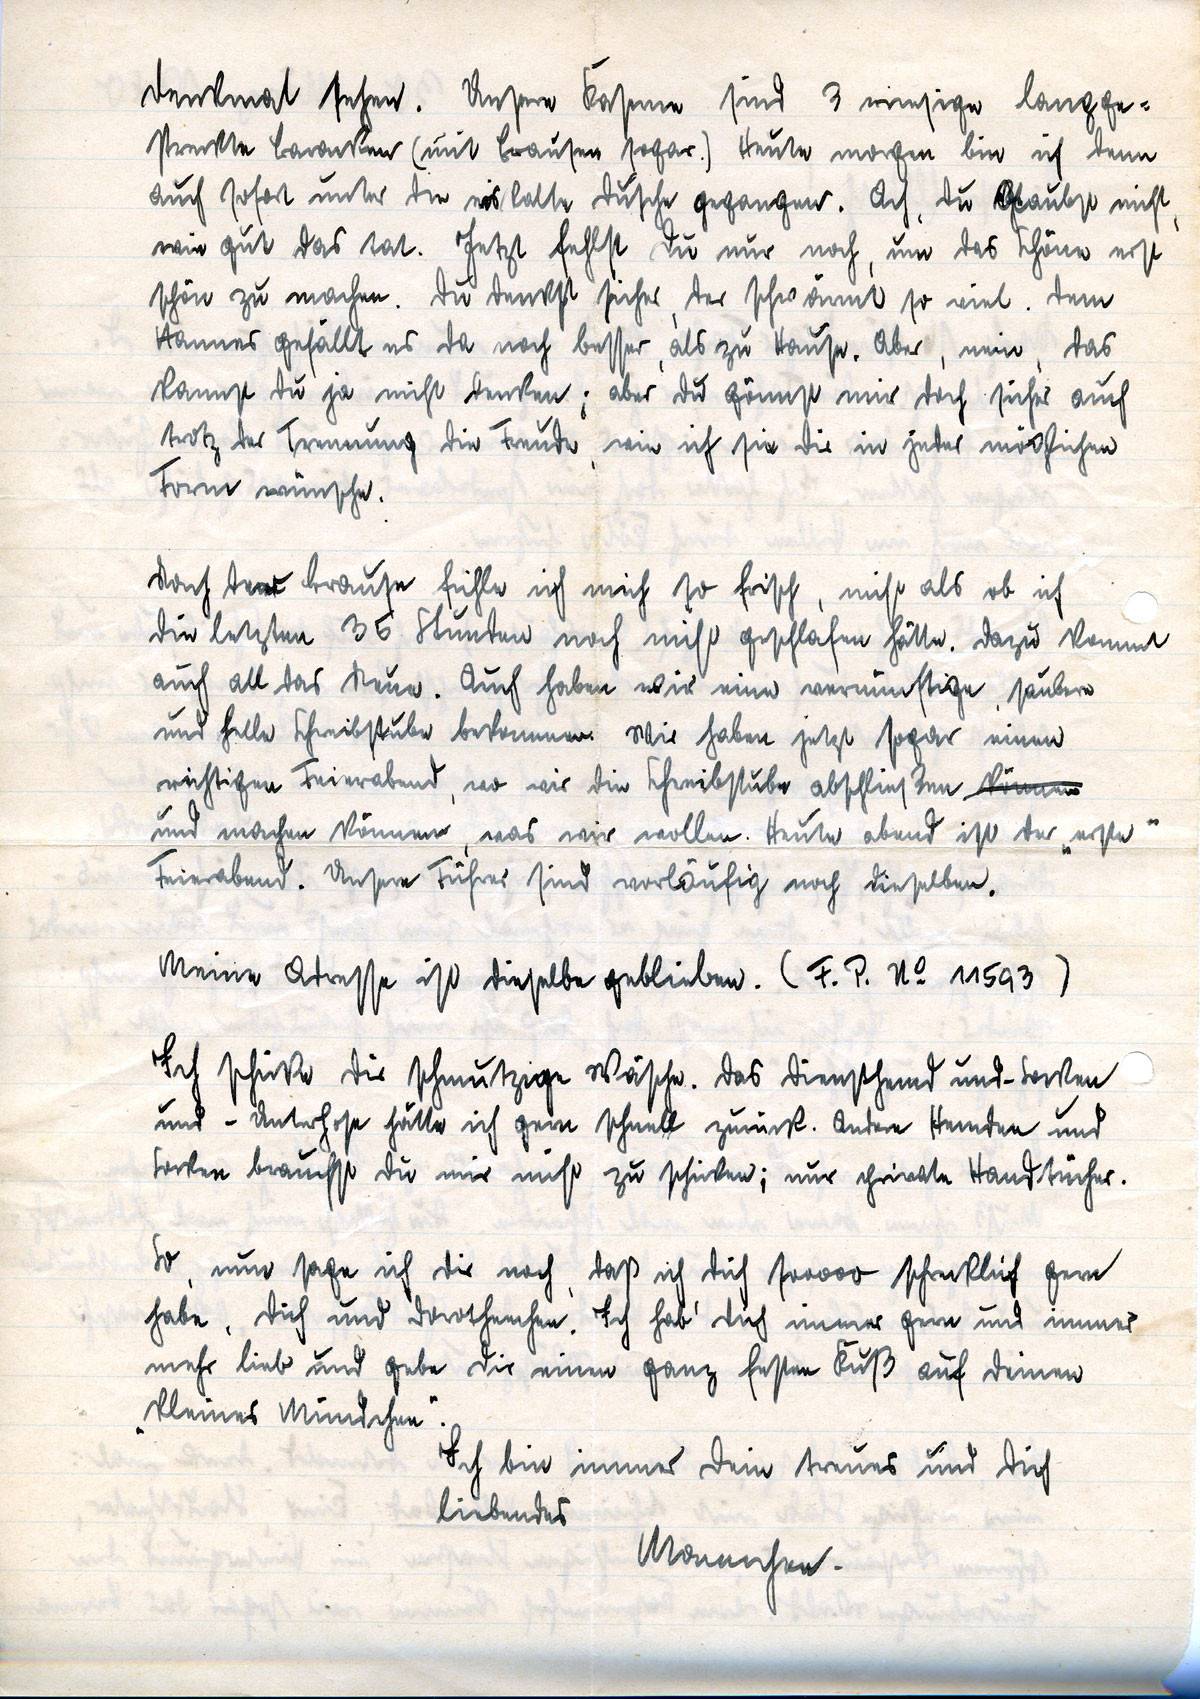 denkmal sehen. Unsere Kaserne sind 3 riesige langge=
streckte Baracken (mit Brausen sogar.) Heute morgen bin ich denn
auch sofort unter die eiskalte Dusche gegangen. Ach, du glaubst nicht,
wie gut das tat. Jetzt fehlst Du nur noch, um das Schöne erst
schön zu machen. Du denkst sicher, der schwärmt so viel. Dem
Hannes gefällt es da noch besser, als zu Hause. Aber, nein, das
kannst Du ja nicht denken; aber Du gönnst mir doch sicher auch
trotz der Trennung die Freude, wie ich sie Dir in jeder möglichen
Form wünsche.
Nach der Brause fühle ich mich so frisch, nicht als ob ich
die letzten 36 Stunden noch nicht geschlafen hätte. Dazu kommt
auch all das Neue. Auch haben wir eine vernünftige, saubere
und helle Schreibstube bekommen. Wir haben jetzt sogar einen
richtigen Feierabend, wo wir die Schreibstube abschließen können
und machen können, was wir wollen. Heute abend ist der „erste"
Feierabend. Unsere Führer sind vorläufig noch dieselben.
Meine Adresse ist dieselbe geblieben. (F. P. No 11593)
Ich schicke Dir schmutzige Wäsche. Das Diensthemd und-Socken
und - Unterhose hätte ich gern schnell zurück. Andere Hemden und
Socken brauchst Du mir nicht zu schicken; nur private Handtücher.
So, nun sage ich Dir noch, daß ich Dich sooooo schrecklich gern
habe, Dich und Dorotheechen. Ich hab' Dich immer gern und immer
mehr lieb und gebe Dir einen ganz festen Kuß auf Deinen
„kleines Mündchen".
Ich bin immer Dein treues und Dich
liebendes
Mannchen.-